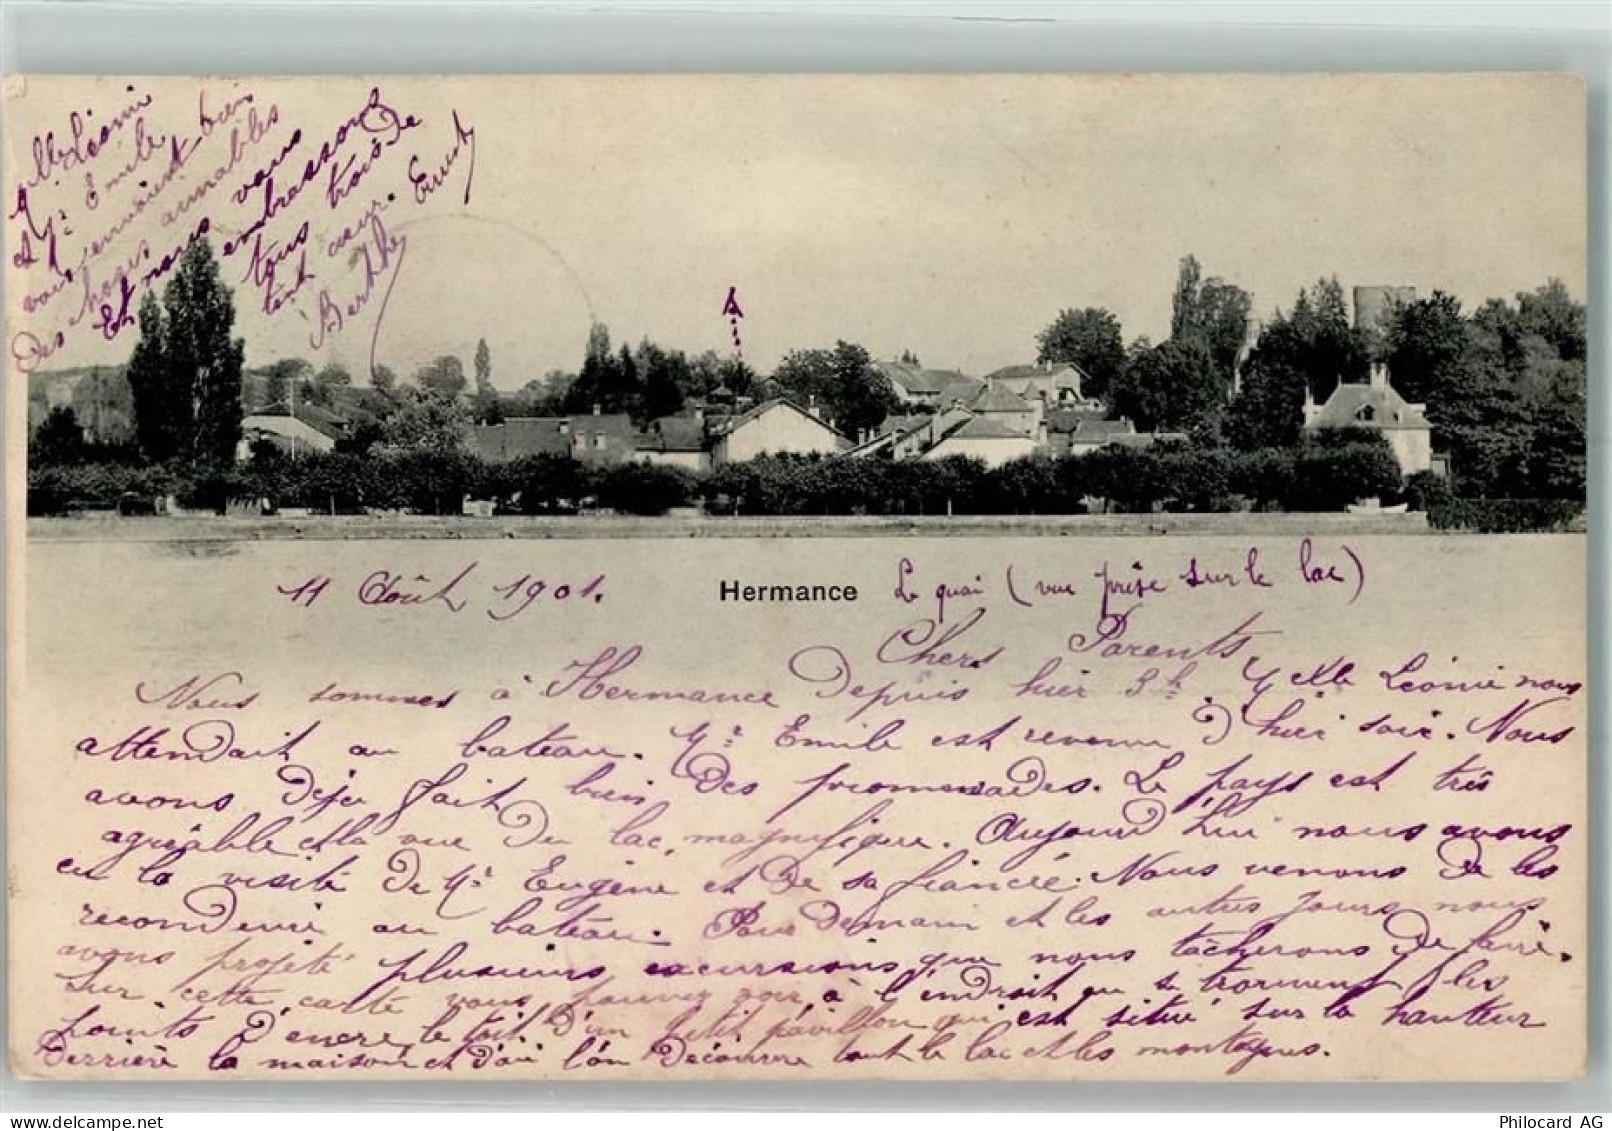 11 Août 1901.
Hermance Le quai (vue prise sur le lac)
Chers Parents
Nous sommes à Hermance depuis hier 3h. Melle Léonie nous
attendait au bateau. Mr Emile est revenu d'hier soir. Nous
avons déja fait bien des promenades. Le pays est très
agréable et la vue du lac, magnifique. Aujourd'hui nous avons
eu la visite de Mr Eugène et de sa fiancée. Nous venons de les
reconduire au bateau. Pour demain et les autres jours nous
avons projeté plusieurs excursions que nous tâcherons de faire.
Sur cette carte vous pouvez voir, à l'endroit ou se trouvent les
points d'encre, le toit d'un petit pavillon qui est situé sur la hauteur
derrière la maison et d'où l'on découvre tout le lac et les montagnes.
Melle Léonie
et Mr Emile
vous envoient bien
des choses aimables
Et nous vous
embrassons
tous trois de
tout cœur. Ernest
Berthe
Philocard AG